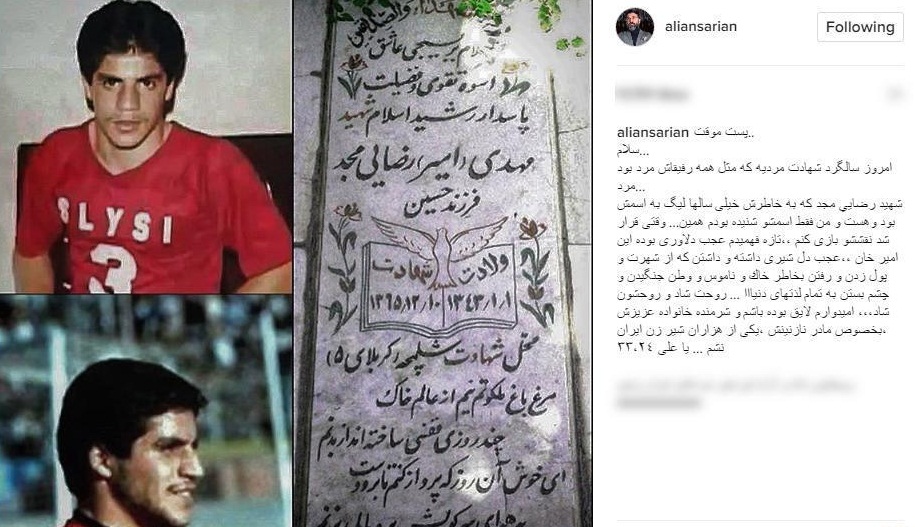 SLYSI
3
اسوه تقوی و فضیلت
پاسدار رشید اسلام شهید
مهدی (امیر) رضایی مجد
فرزند حسین
ولادت شهادت
۱۳۴۳/۱/۱ ۱۳۶۵/۱۲/۱۰
محل شهادت شلمچه (کربلای ۵)
مرغ باغ ملکوتم نیم از عالم خاک
چند روزی قفسی ساخته اند از بدنم
ای خوش آن روز که پرواز کنم تا بر دوست
aliansarian
Following
aliansarian پست موقت..
سلام...
امروز سالگرد شهادت مردیه که مثل همه رفیقاش مرد بود
مرد...
شهید رضایی مجد که به خاطرش خیلی سالها لیگ به اسمش
بود و هست و من فقط اسمشو شنیده بودم همین... وقتی قرار
شد نقششو بازی کنم ،،تازه فهمیدم عجب دلاوری بوده این
امیر خان ،،عجب دل شیری داشته و داشتن که از شهرت و
پول زدن و رفتن بخاطر خاك و ناموس و وطن جنگیدن و
چشم بستن به تمام لذتهای دنیااا ... روحت شاد و روحشون
شاد،،، امیدوارم لایق بوده باشم و شرمنده خانواده عزیزش
،بخصوص مادر نازنینش ،یکی از هزاران شیر زن ایران
نشم ... یا علی ۳۳،۲۴